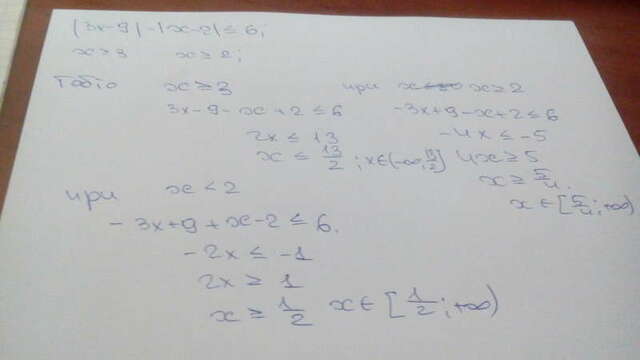 |3x-9|-|x-2|≤6;
x≥3 x≥2;
Тобто x≥3 при x≥2
3x-9-x+2≤6 -3x+9-x+2≤6
2x≤13 -4x≤-5
x≤13/2; x∈(-∞;13/2] 4x≥5
x≥5/4.
x∈[5/4;+∞)
при x<2
-3x+9+x-2≤6.
-2x≤-1
2x≥1
x≥1/2 x∈[1/2;+∞)